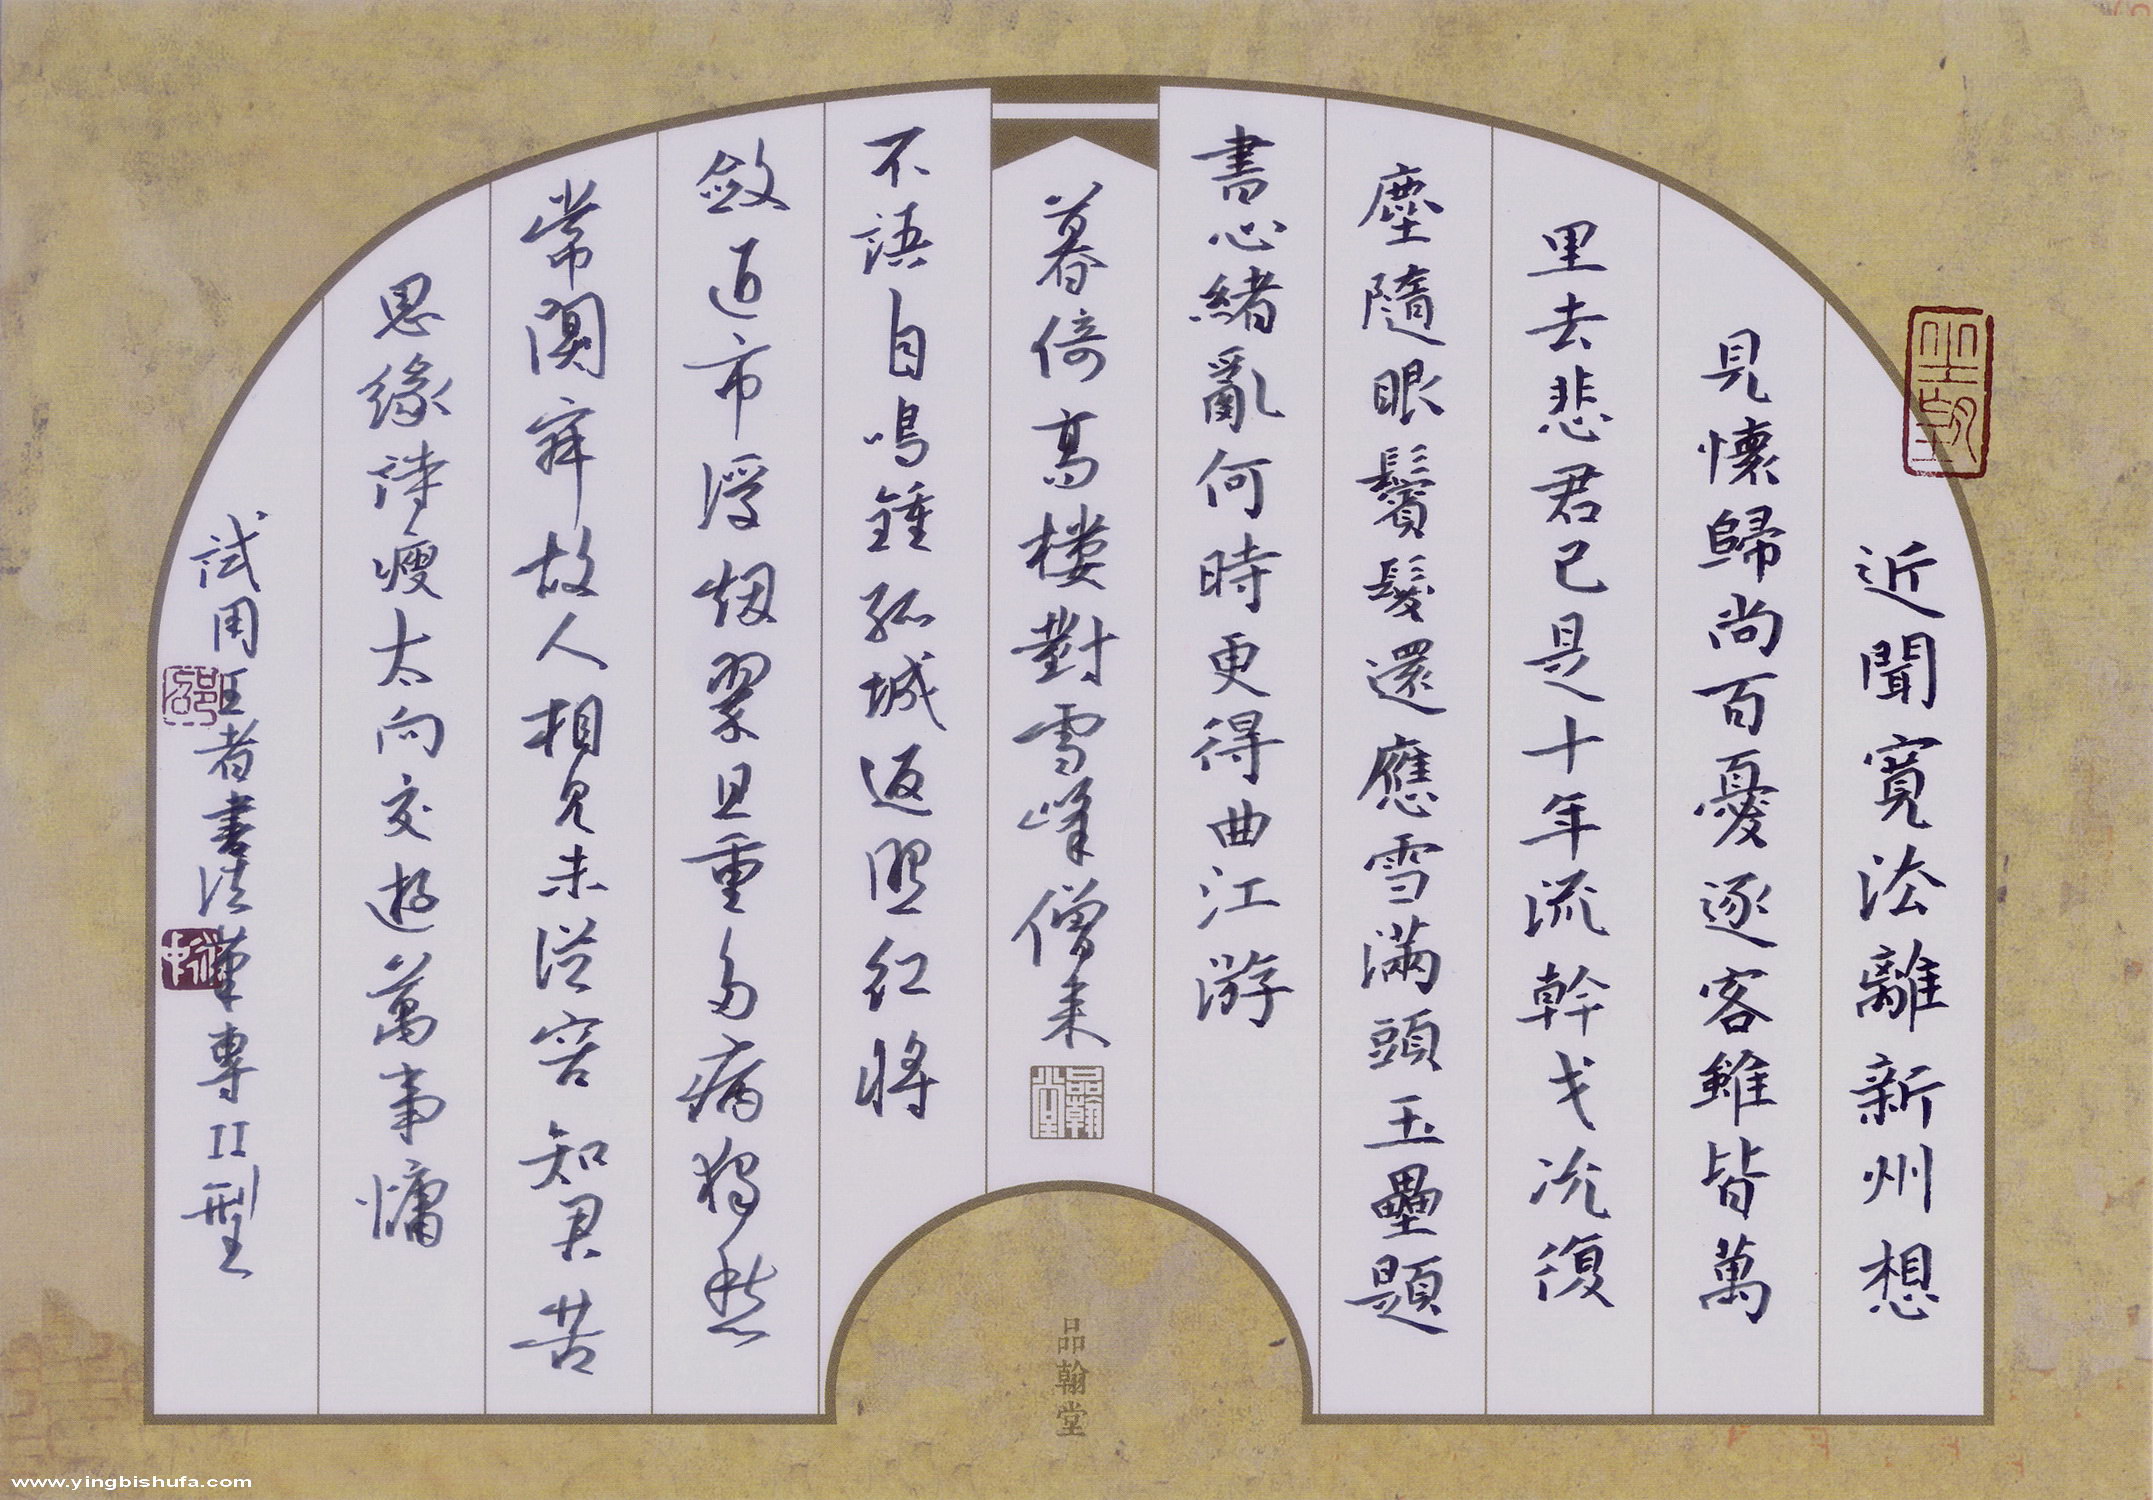 近聞寬法離新州想
見懷歸尚百憂逐客雖皆萬
里去悲君已是十年流幹戈況復
塵隨眼鬢髮還應雪滿頭玉壘題
書心緒亂何時更得曲江游
暮倚高樓對雪峰僧來
不語自鳴鐘孤城返照紅將
斂近市浮烟翠且重多病獨愁
常闃寂故人相見未從容知君苦
思緣詩瘦太向交遊萬事慵
試用王者書法筆專II型
品翰堂
品翰堂
www.yingbishufa.com